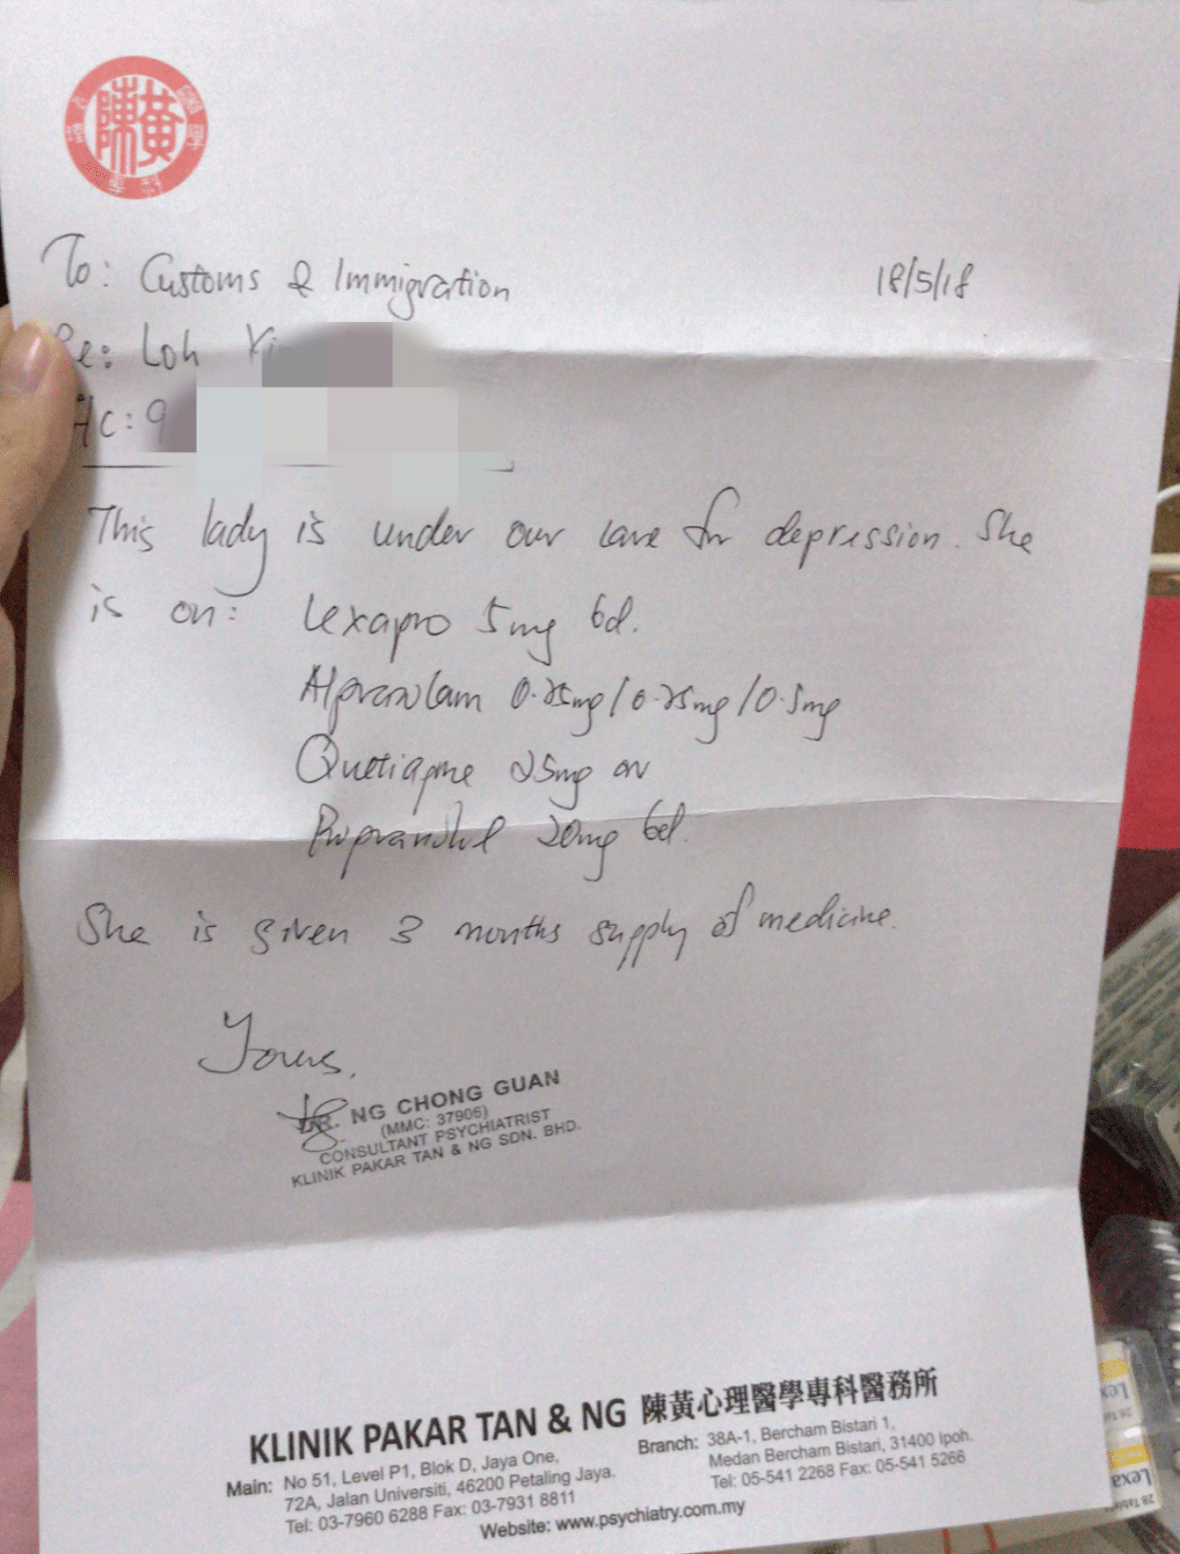 陳黃
To: Customs & Immigration
18/5/18
Re: Loh
9
This lady is under our care for depression. She
is on: Lexapro 5mg bd.
Alprazolam 0.25mg/0.25mg/0.5mg
Quetiapine 25mg on
Propranolol 20mg bd.
She is given 3 months supply of medicine.
Yours,
DR. NG CHONG GUAN
(MMC: 37906)
CONSULTANT PSYCHIATRIST
KLINIK PAKAR TAN & NG SDN. BHD.
KLINIK PAKAR TAN & NG 陳黃心理醫學專科醫務所
Main: No 51, Level P1, Blok D, Jaya One,
72A, Jalan Universiti, 46200 Petaling Jaya.
Tel: 03-7960 6288 Fax: 03-7931 8811
Branch: 38A-1, Bercham Bistari 1,
Medan Bercham Bistari, 31400 Ipoh.
Tel: 05-541 2268 Fax: 05-541 5266
Website: www.psychiatry.com.my